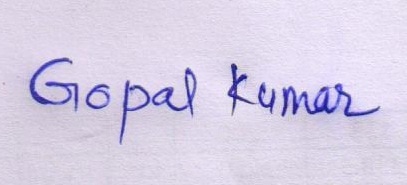 Gopal Kumar